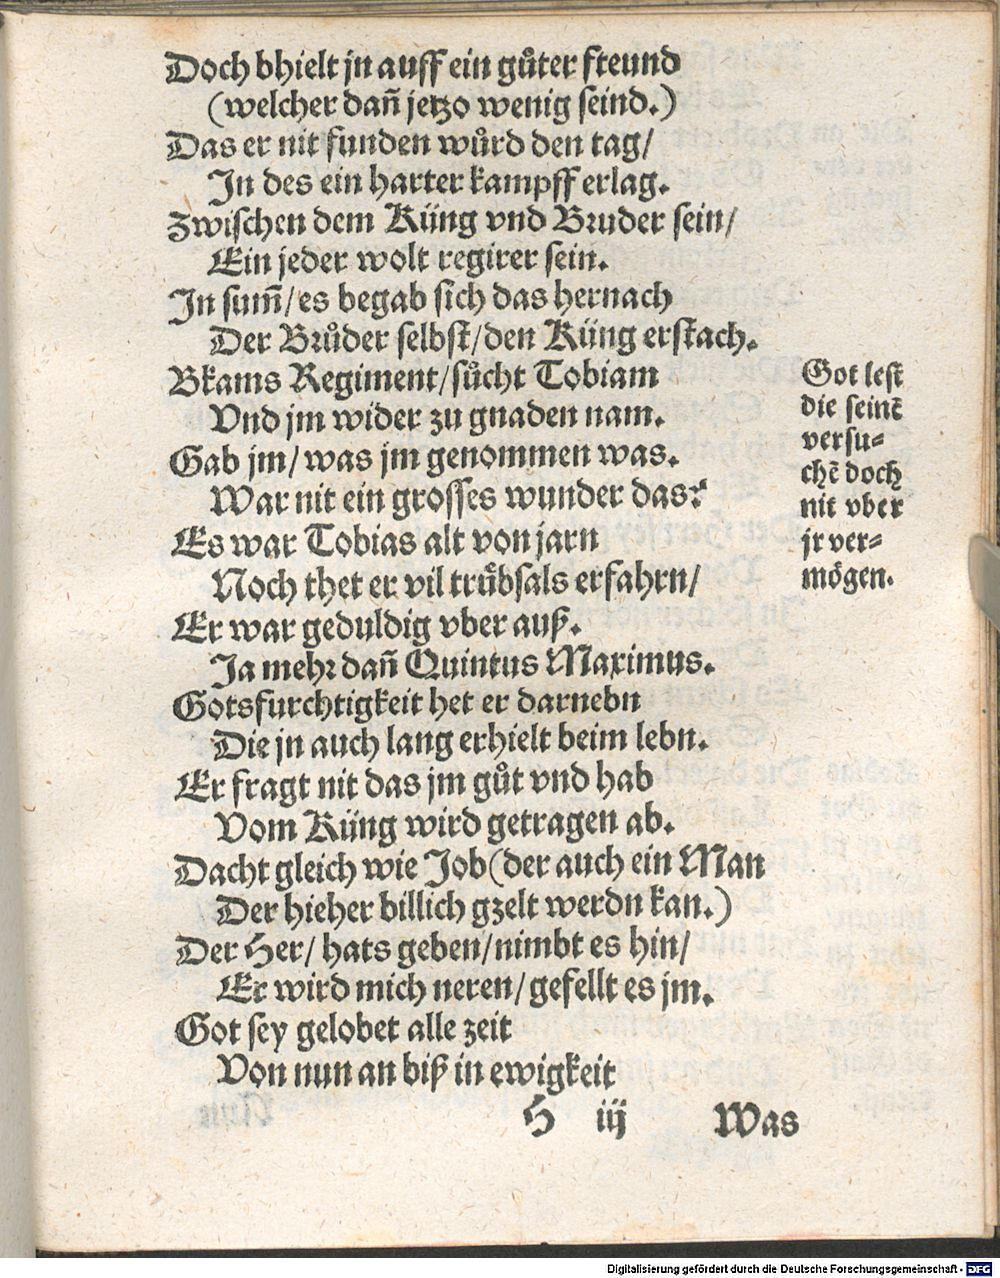 Doch bhielt jn auff ein gůter freund
(welcher dañ jetzo wenig seind.)
Das er nit funden wůrd den tag/
In des ein harter kampff erlag.
Zwischen dem Küng vnd Bruder sein/
Ein jeder wolt regirer sein.
In sum̃/es begab sich das hernach
Der Brůder selbst/den Küng erstach.
Bkams Regiment/sůcht Tobiam
Vnd jm wider zu gnaden nam.
Gab jm/was jm genommen was.
War nit ein grosses wunder das?
Es war Tobias alt von jarn
Noch thet er vil trůbsals erfahrn/
Er war geduldig vber auß.
Ja mehr dañ Quintus Maximus.
Gotsfurchtigkeit het er darnebn
Die jn auch lang erhielt beim lebn.
Er fragt nit das jm gůt vnd hab
Vom Küng wird getragen ab.
Dacht gleich wie Job(der auch ein Man
Der hieher billich gzelt werdn kan.)
Der Her/hats geben/nimbt es hin/
Er wird mich neren/gefellt es jm.
Got sey gelobet alle zeit
Von nun an biß in ewigkeit
H iij Was
Got lest
die seinẽ
versu=
chẽ doch
nit vber
jr ver=
mögen.
Digitalisierung gefördert durch die Deutsche Forschungsgemeinschaft - DFG